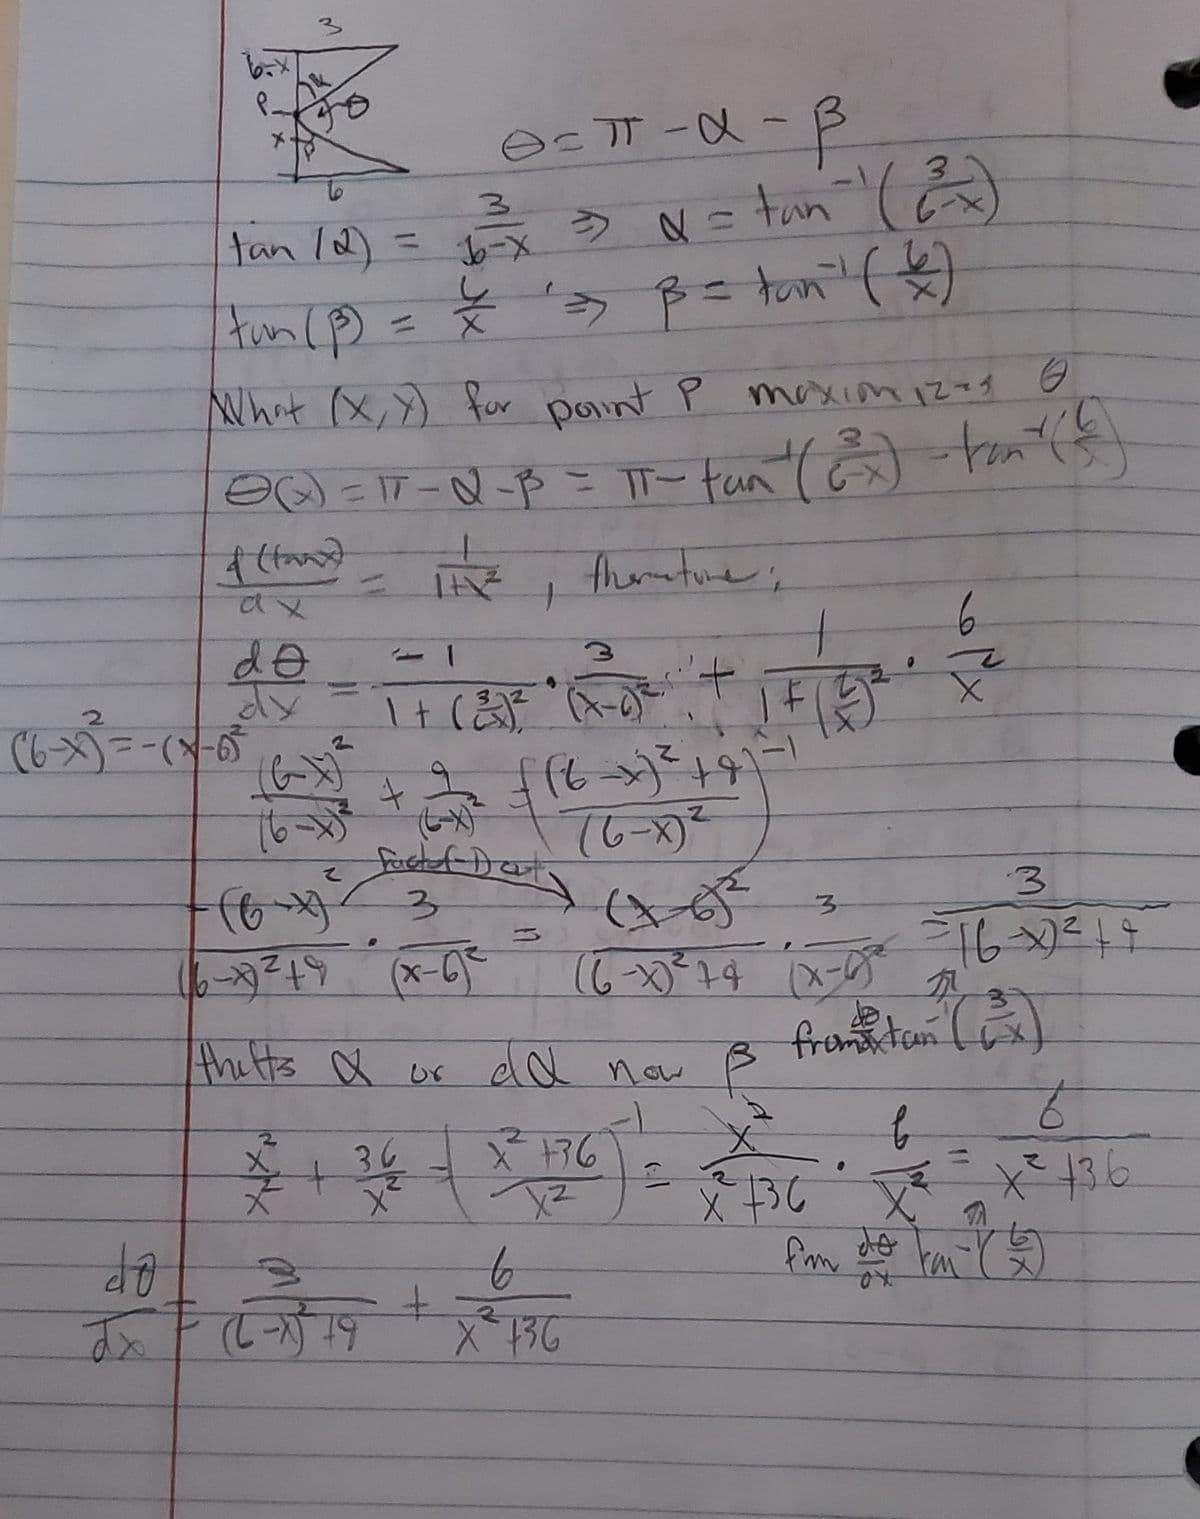 3
6-x
α
P
θ
x
β
6
θ = π - α - β
tan(α) = 3/(6-x) ⇒ α = tan⁻¹(3/(6-x))
tan(β) = 6/x ⇒ β = tan⁻¹(6/x)
What (x,y) for point P θ
θ(x) = π - α - β = π - tan⁻¹(3/(6-x)) - tan⁻¹(6/x)
= 1/(1+x²),
dθ/dx = -1/(1+(3/(6-x))²) · 3/(x-6)² + 1/(1+(6/x)²) · 6/x²
(6-x)² = -(x-6)²
(6-x)²/(6-x)² + 9/(6-x)² = ((6-x)²+9)/(6-x)²)⁻¹
Factor(-1) out
-(6-x)²/((6-x)²+9) · 3/(x-6)² = (x-6)²/((6-x)²+9) · 3/(x-6)² = 3/((6-x)²+9)
from dθ/dx tan⁻¹(3/(6-x))
α or dα now β
x²/x² + 36/x² = ((x²+36)/x²)⁻¹ = x²/(x²+36) · 6/x² = 6/(x²+36)
fm dθ/dx tan⁻¹(6/x)
dθ/dx = 3/((6-x)²+9) + 6/(x²+36)